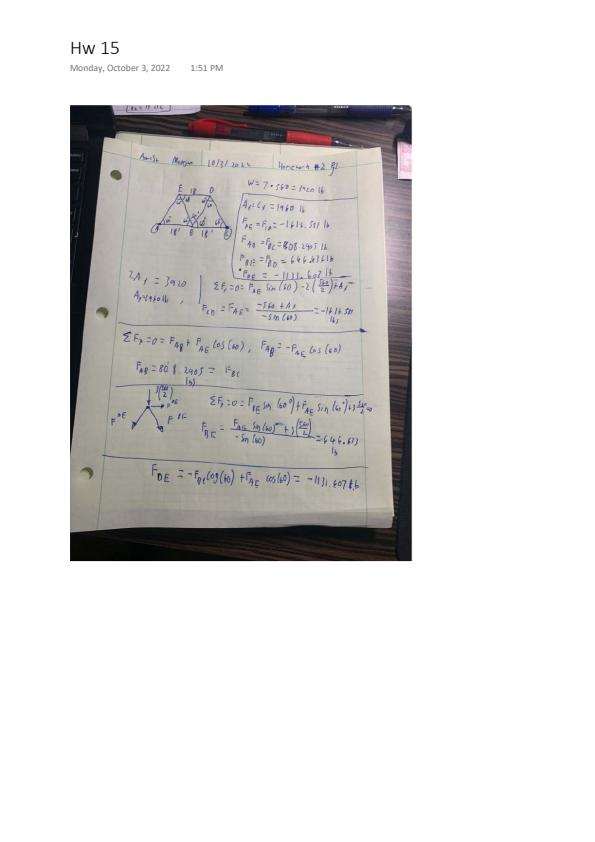 Hw 15
Monday, October 3, 2022 1:51 PM
10/3/2022 Homework #2
W = 7 * 560 = 1920 lb
E 18 D
A 18' B 18'
= 1960 lb
= -1616.581 lb
= 808.2905 lb
= 646.636 lb
= -1131.607 lb
2A_y = 3920
A_y = 1960 lb,
ΣF_y = 0 = F_AE sin(60) - 2(560/2) + A_y
F_CD = F_AE = (-560 + A_y)/(-sin(60)) = -1616.581 lbs
ΣF_x = 0 = F_AB + F_AE cos(60), F_AB = -F_AE cos(60)
F_AB = 808.2905 = F_BC
lbs
3(560/2)
F^DE
F^BE
ΣF_y = 0 = F_BE sin(60°) + F_AE sin(60°) + 3 560/2
F_BE = (F_AE sin(60) + 3(560/2))/(-sin(60)) = 646.633
lb
F_DE = -F_BE cos(60) + F_AE cos(60) = -1131.607 lb